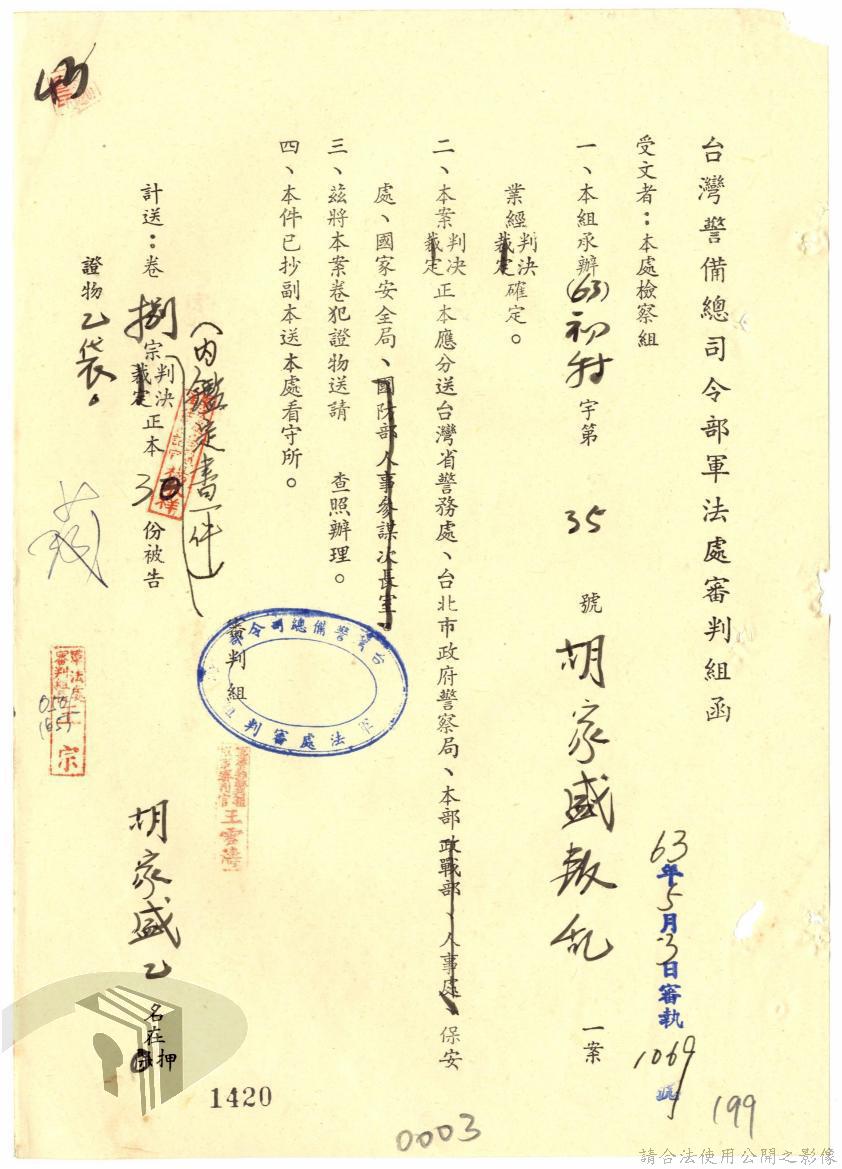 台灣警備總司令部軍法處審判組函
63年5月3日審執1069號
受文者：本處檢察組
一、本組承辦(63)初特字第35號胡家盛叛亂一案
業經判決裁定確定。
二、本案判決裁定正本應分送台灣省警務處、台北市政府警察局、本部政戰部、人事處、保安
處、國家安全局、國防部人事參謀次長室。
三、茲將本案卷犯證物送請　查照辦理。
四、本件已抄副本送本處看守所。
審判組
台灣警備總司令部
軍法處審判
（內鑑定書一件）
計送：卷捌宗判決裁定正本30份被告胡家盛乙名在押
證物乙袋。
軍法處
審判組
宗
王雲濤
1420
0003
199
請合法使用公開之影像